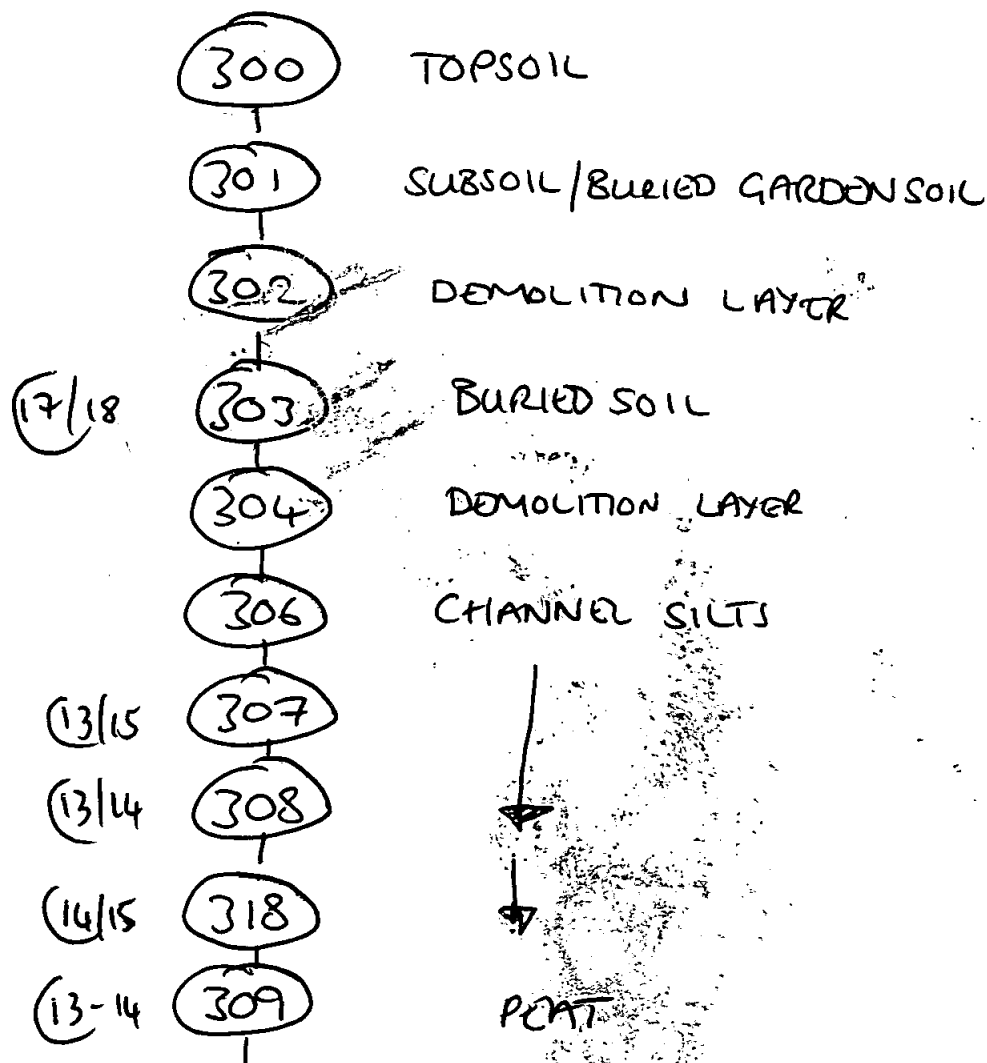 300 TOPSOIL
301 SUBSOIL/BURIED GARDENSOIL
302 DEMOLITION LAYER
17/18 303 BURIED SOIL
304 DEMOLITION LAYER
306 CHANNEL SILTS
13/15 307
13/14 308
14/15 318
13-14 309 PEAT